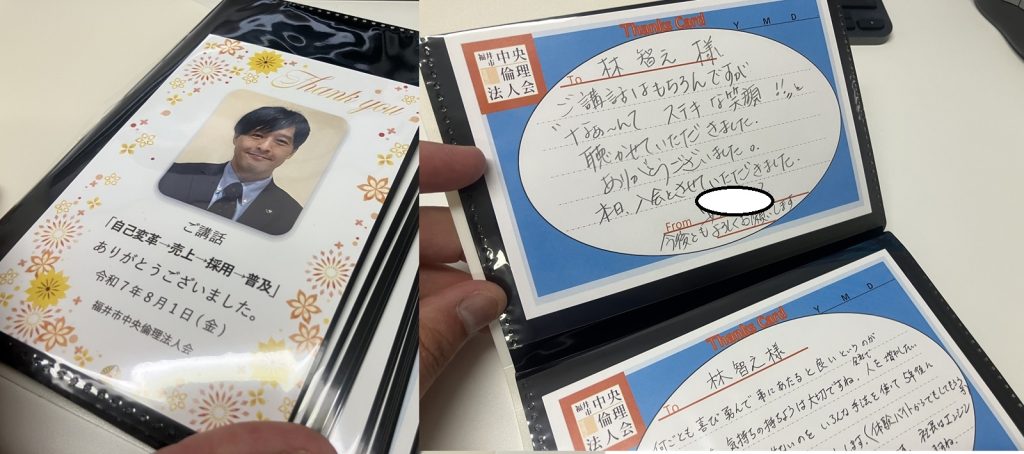 Thank you
ご講話
「自己変革→売上→採用→普及」
ありがとうございました。
令和7年8月1日(金)
福井市中央倫理法人会
Thanks Card
Y M D
福井市中央
倫理
法人会
To 林 智え 様
ご講話はもちろんですが
ステキな笑顔!!
聴かせていただきました。
ありがとうございました。
本日、入会させていただきました。
From
今後ともよろしくお願いします
Thanks Card
Y M D
福井市中央
倫理
法人会
To 林 智え 様
何ごとも喜び勇んで事にあたると良いというのが
気持ちの持ちようは大切ですね。人を増やしたい
いろんな手法を使って5年後に
(体験バイトからでもしてもらう
社長はエンジン